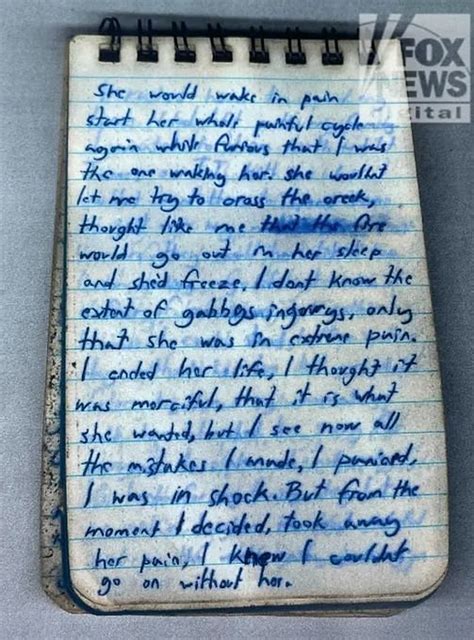 FOX
NEWS
digital
She would wake in pain
start her whole painful cycle
again while furious that I was
the one waking her. she wouldnt
let me try to cross the creek,
thought like me that the fire
would go out in her sleep
and shed freeze, I dont know the
extent of gabbys injourys, only
that she was in extreme pain.
I ended her life, I thought it
was merciful, that it is what
she wanted, but I see now all
the mistakes I made, I paniced,
I was in shock. But from the
moment I decided, took away
her pain, I knew I couldnt
go on without her.